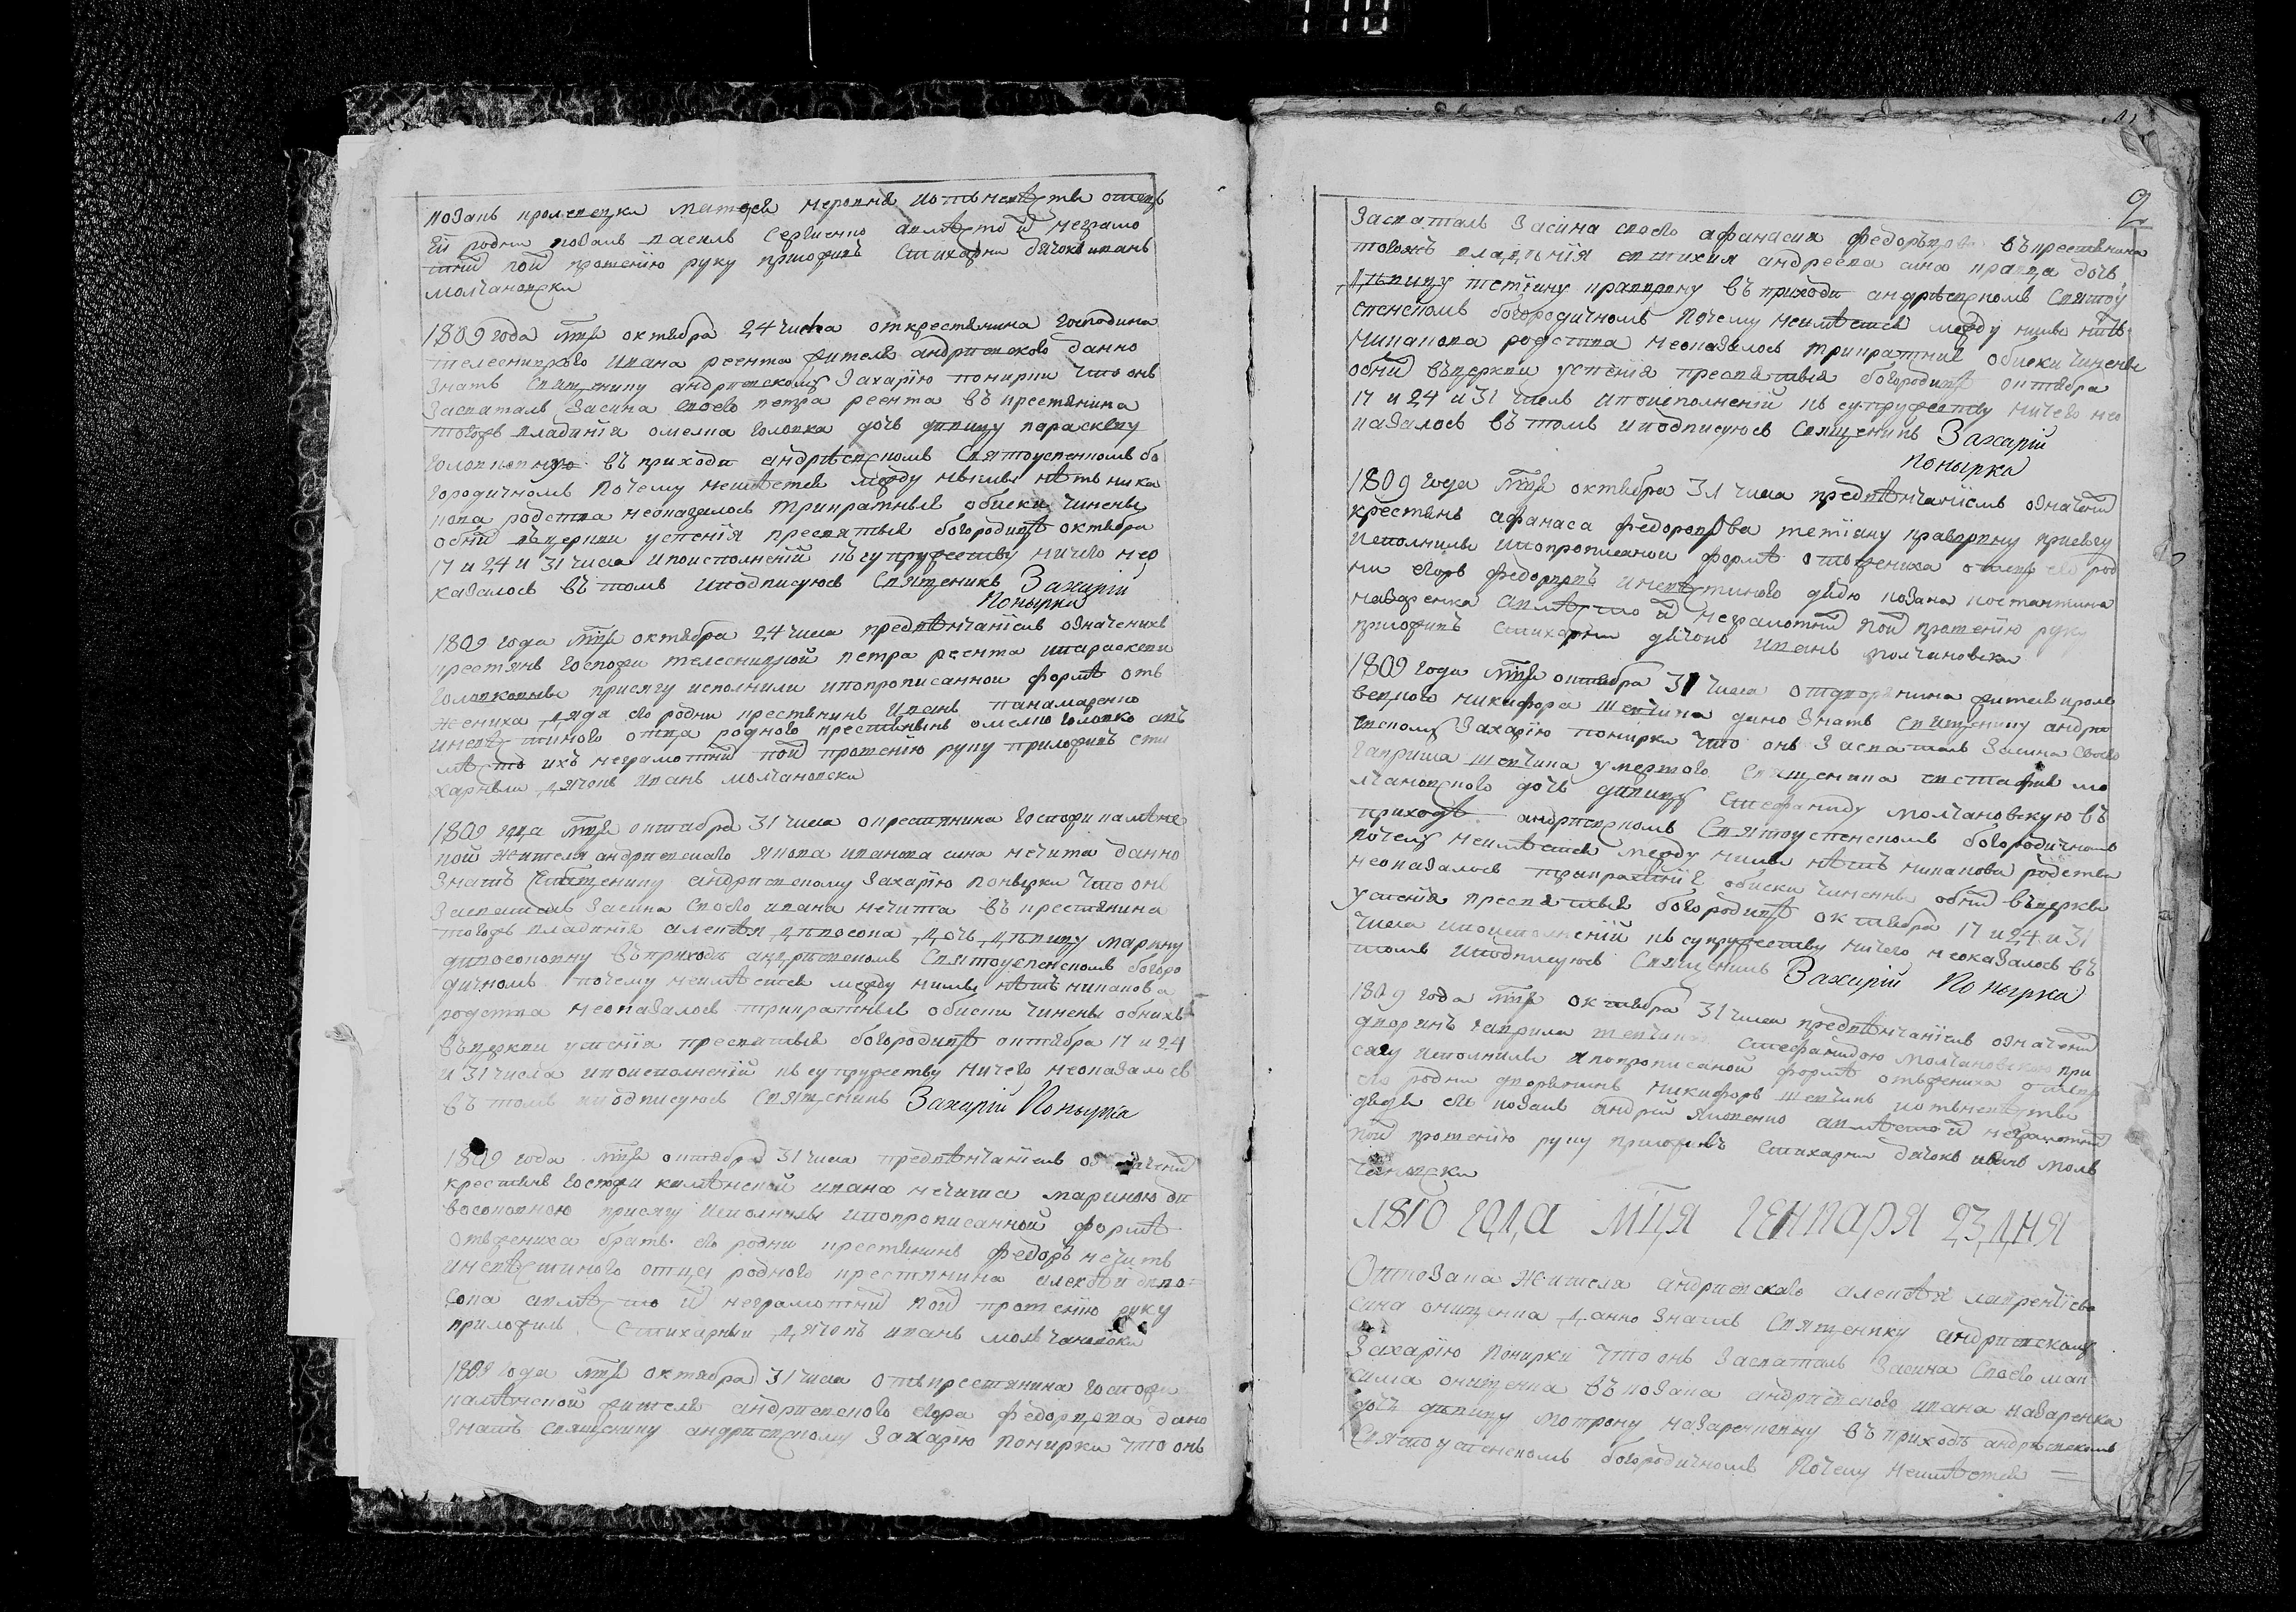 козакъ кролевецки матфеа мероння ꙗотъ невѣсти отецъ
ей родни козакъ василь сергиенко амѣсто й неграмо
тний под прошенїю руку приложивъ стихарни дячокъ иванъ
молчановски
1809 года мця октября 24 числа от крестянина господина
телесницкого ивана реента жителя андриевского данно
знать священику андриевскому захарїю понирки что онъ
засваталъ засина своего петра реента въ крестянина
тогожъ владѣнїя омелка головка дочь дѣвицу параскеву
головковну въ приходи андрѣевскомъ святоуспенскомъ бо
городичномъ почему неимѣетсѧ между нимы нѣть ника
кова родства неоказалось трикратные обиски чинены
обнїй въцеркви успения пресвятыя богородицѣ октября
17 и 24 и 31 числа ипоисполнений къ супружеству ничего нео
казалось въ томъ иподписуюсь священикъ Захарїй
Понырка
1809 года мця октября 24 числа предвѣнчанїемъ означенихъ
крестянъ госпожи телесницкой петра реента ипараскеви
головковны присягу исполнили ипопрописанной формѣ отъ
жениха дядя его родни крестянинъ иванъ панамаренко
иневѣстиного отца родного крестянинъ омелко головко авъ
мѣсто ихъ неграмотний под прошенїю руку приложивъ сти
харны дячокъ иванъ молчановски
1809 года мця октября 31 числа окрестянина госпожи камѣнс
кой жителя андриевского якова иванова сина нечита данно
знать священику андриевскому захарїю понырки что онъ
засваталъ засина своего ивана нечита въ крестянина
тогожъ владѣнїя алексѣя дивосона дочь дѣвицу марину
дивосоновну въ приходи андриевскомъ святоуспенскомъ богоро
дичномъ почему неимѣется между нимы нѣтъ никакова
родства неоказалось трикратные обиски чинены обнихъ
въцеркви успения пресвятыя богородицѣ октября 17 и 24
и 31 числа ипоисполнений къ супружству ничего неоказалось
въ томъ иподписуюсь священикъ Захарїй Понырка
1809 года мця октября 31 числа предвѣнчанїемъ означений
крестянъ госпожи камѣнской ивана нечита мариною ди
восоновною присягу исполнили ипопрописанной формѣ
отъжениха братъ его родни крестянинъ федоръ нечитъ
иневѣстиного отца родного крестянина алексѣй диво=
сона амѣсто й неграмотний под прошенїю руку
приложилъ стихарный дячокъ иванъ молчановски
1809 года мця октября 31 числа отъ крестянина госпожи
камѣнской жителя андриевского егора федорцова дано
знать священику андриевскому захарїю понирки что онъ
2
засваталъ засина своего афанасия федорцова въ крестянина
тогожъ владѣнїя евтихия андреева сина правца дочь
дѣвицу тетїану правцовну въ приходи андрѣевскомъ святоу
спенскомъ богородичномъ почему неимѣется между нимы нить
никакова родства неоказалось трикратние обиски чинены
обний въцеркви успения пресвятыя богородицѣ октября
17 и 24 и 31 числъ ипоисполнений къ супружеству ничего нео
казалось въ томъ иподписуюсь священикъ Захарїй
Понырка
1809 года мця октября 31 числа предвѣнчанїемъ означений
крестянъ афанаса федорцова тетїану правцовну присягу
исполнилы ипопрописаной формѣ отъжениха отецъ его род
ни егоръ федорцовъ иневѣстиного дядю козака костантина
назаренка амѣсто й неграмотний под прошенїю руку
приложивъ стихарни дячокъ иванъ молчановски
1809 года мця октября 31 числа отдворянина жителя кроле
вецкого никифора шепчина дано знать священику андри
евскому захарїю понирки что онъ засваталъ засина своего
гаврила шепчина умертого священика евстафия мо
лчановского дочь дѣвицу стефаниду молчановскую въ
приходѣ андриевскомъ святоуспенскомъ богородичномъ
почему неимѣется между нимы нѣтъ никакова родства
неоказалось трикратнїе обиски чинены обний въцеркви
успения пресвятыя богородицѣ октября 17 и 24 и 31
числа ипоисполнений къ супружеству ничего неоказалось въ
томъ иподписуюсь священикъ Захарїй Понырка
1809 года мця октября 31 числа предвѣнчанїемъ означений
дворянъ гаврила шепчина стефанидою молчановскою при
сягу исполнилы ипопрописаной формѣ отъжениха отецъ
его родни дворянинъ никифоръ шепчинъ иотъневѣсти
дядя ея козакъ андрей якименко амѣсто й неграмотний
под прошенїю руку приложивъ стихарни дячокъ иванъ мол
чановски
1810 года мця генваря 23 дня
Откозака жителя андриевского алексѣя лаврентїева
сина онищенка данно знать священику андриевскому
захарїю понирки что онъ засваталъ засина своего мак
сима онищенка въ козака андриевского ивана назаренка
дочь дѣвицу мотрону назаренковну въ приходѣ андриевскомъ
святоуспенскомъ богородичномъ почему неимѣется =